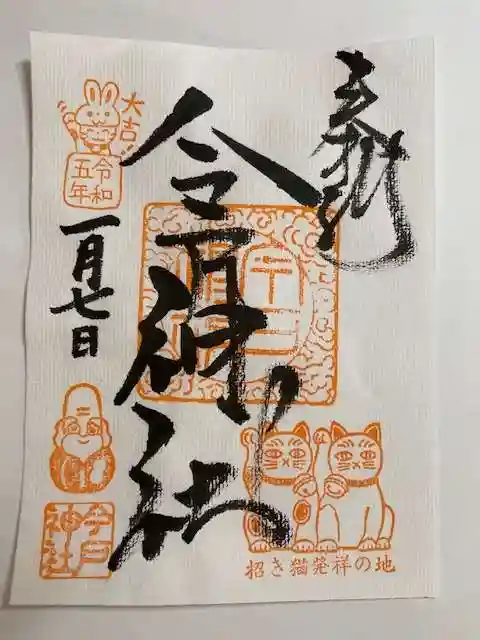 奉拝
今戸神社
大吉!!
令和
五年
一月七日
今戸
神社
招き猫発祥の地